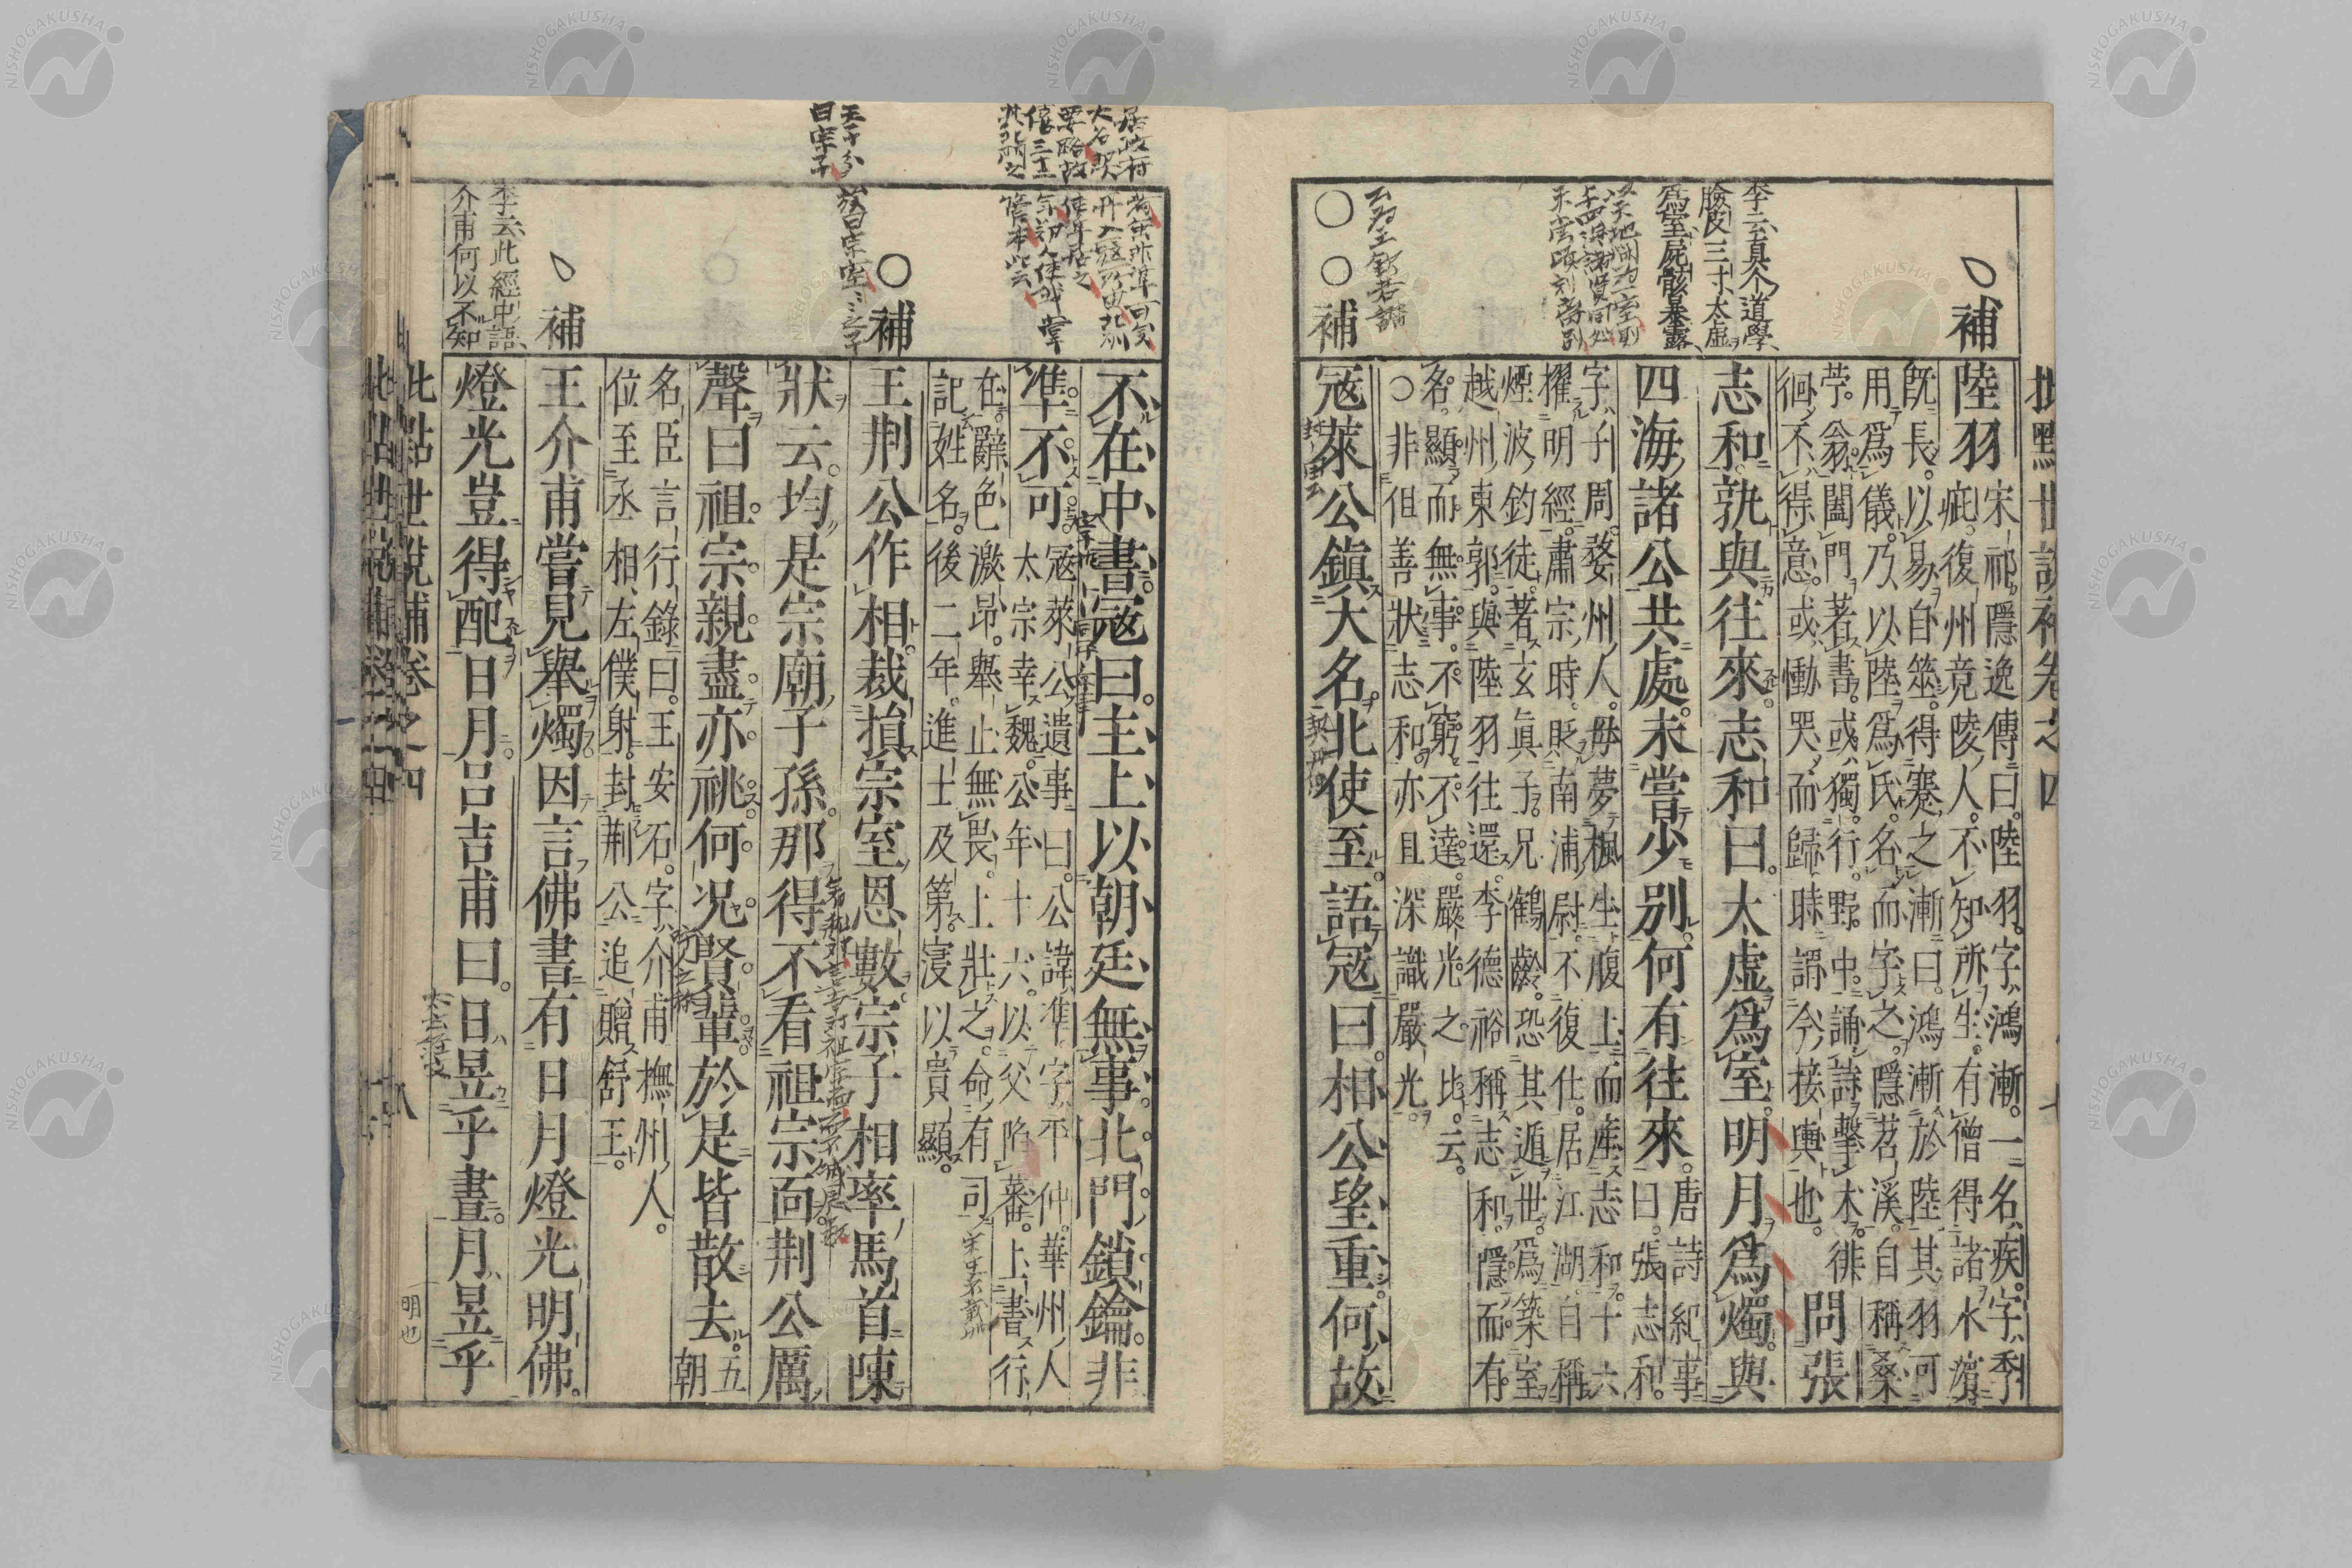 批點世說補卷之四
補
李云真个道學
臉皮三寸太虛
爲室屍骸暴露
公爲王欽若譖
○○補
陸羽
宋祁隱逸傳曰。陸羽。字鴻漸。一名疾。字季
疵。復州竟陵人。不知所生。有僧得諸水濱
既長。以易自筮。得蹇之漸曰。鴻漸於陸其羽可
用爲儀。乃以陸爲氏。名而字之。隱苕溪。自稱桑
苧翁。闔門著書。或獨行野中。誦詩擊木。徘
徊不得意。或慟哭而歸。時謂今接輿也。
問張
志和孰與往來。志和曰。太虛爲室。明月爲燭。與
四海諸公共處。未嘗少別。何有往來。
唐詩紀事
曰。張志和。
字子周。婺州人。母夢楓生腹上而產志和。十六
擢明經。肅宗時。貶南浦尉。不復仕。居江湖。自稱
煙波釣徒。著玄眞子。兄鶴齡。恐其遁世。爲築室
越州東郭。與陸羽往還。李德裕稱志和。隱而有
名。顯而無事。不窮不達。嚴光之比。云。
○非但善狀志和。亦且深識嚴光。
寇萊公鎮大名。北使至。語寇曰。相公望重。何故
不在中書。寇曰。主上以朝廷無事。北門鎖鑰。非
準不可。
寇萊公遺事曰。公諱準。字平仲。華州人
太宗幸魏。公年十六。以父陷蕃。上書行
在。辭色激昂。舉止無畏。上壯之。命有司
記姓名。後二年。進士及第。寖以貴顯。
○補
王荆公作相。裁損宗室恩數。宗子相率馬首陳
狀云。均是宗廟子孫。那得不看祖宗面。荆公厲
聲曰。祖宗親盡亦祧。何况賢輩。於是皆散去。
五朝
名臣言行錄曰。王安石。字介甫。撫州人。
位至丞相左僕射。封荆公。追贈舒王。
補
王介甫嘗見舉燭。因言佛書有日月燈光明佛。
燈光豈得配日月。呂吉甫曰。日昱乎晝。月昱乎
李云此經中語
介甫何以不知
明也
八